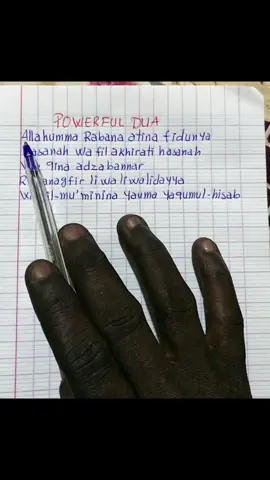 POWERFUL DUA
Allahumma Rabana atina fidunya
hasanah wafilakhirati hasanah
qina adzabannar
liwaliwalidayya
mu'minina yauma yaqumul-hisab